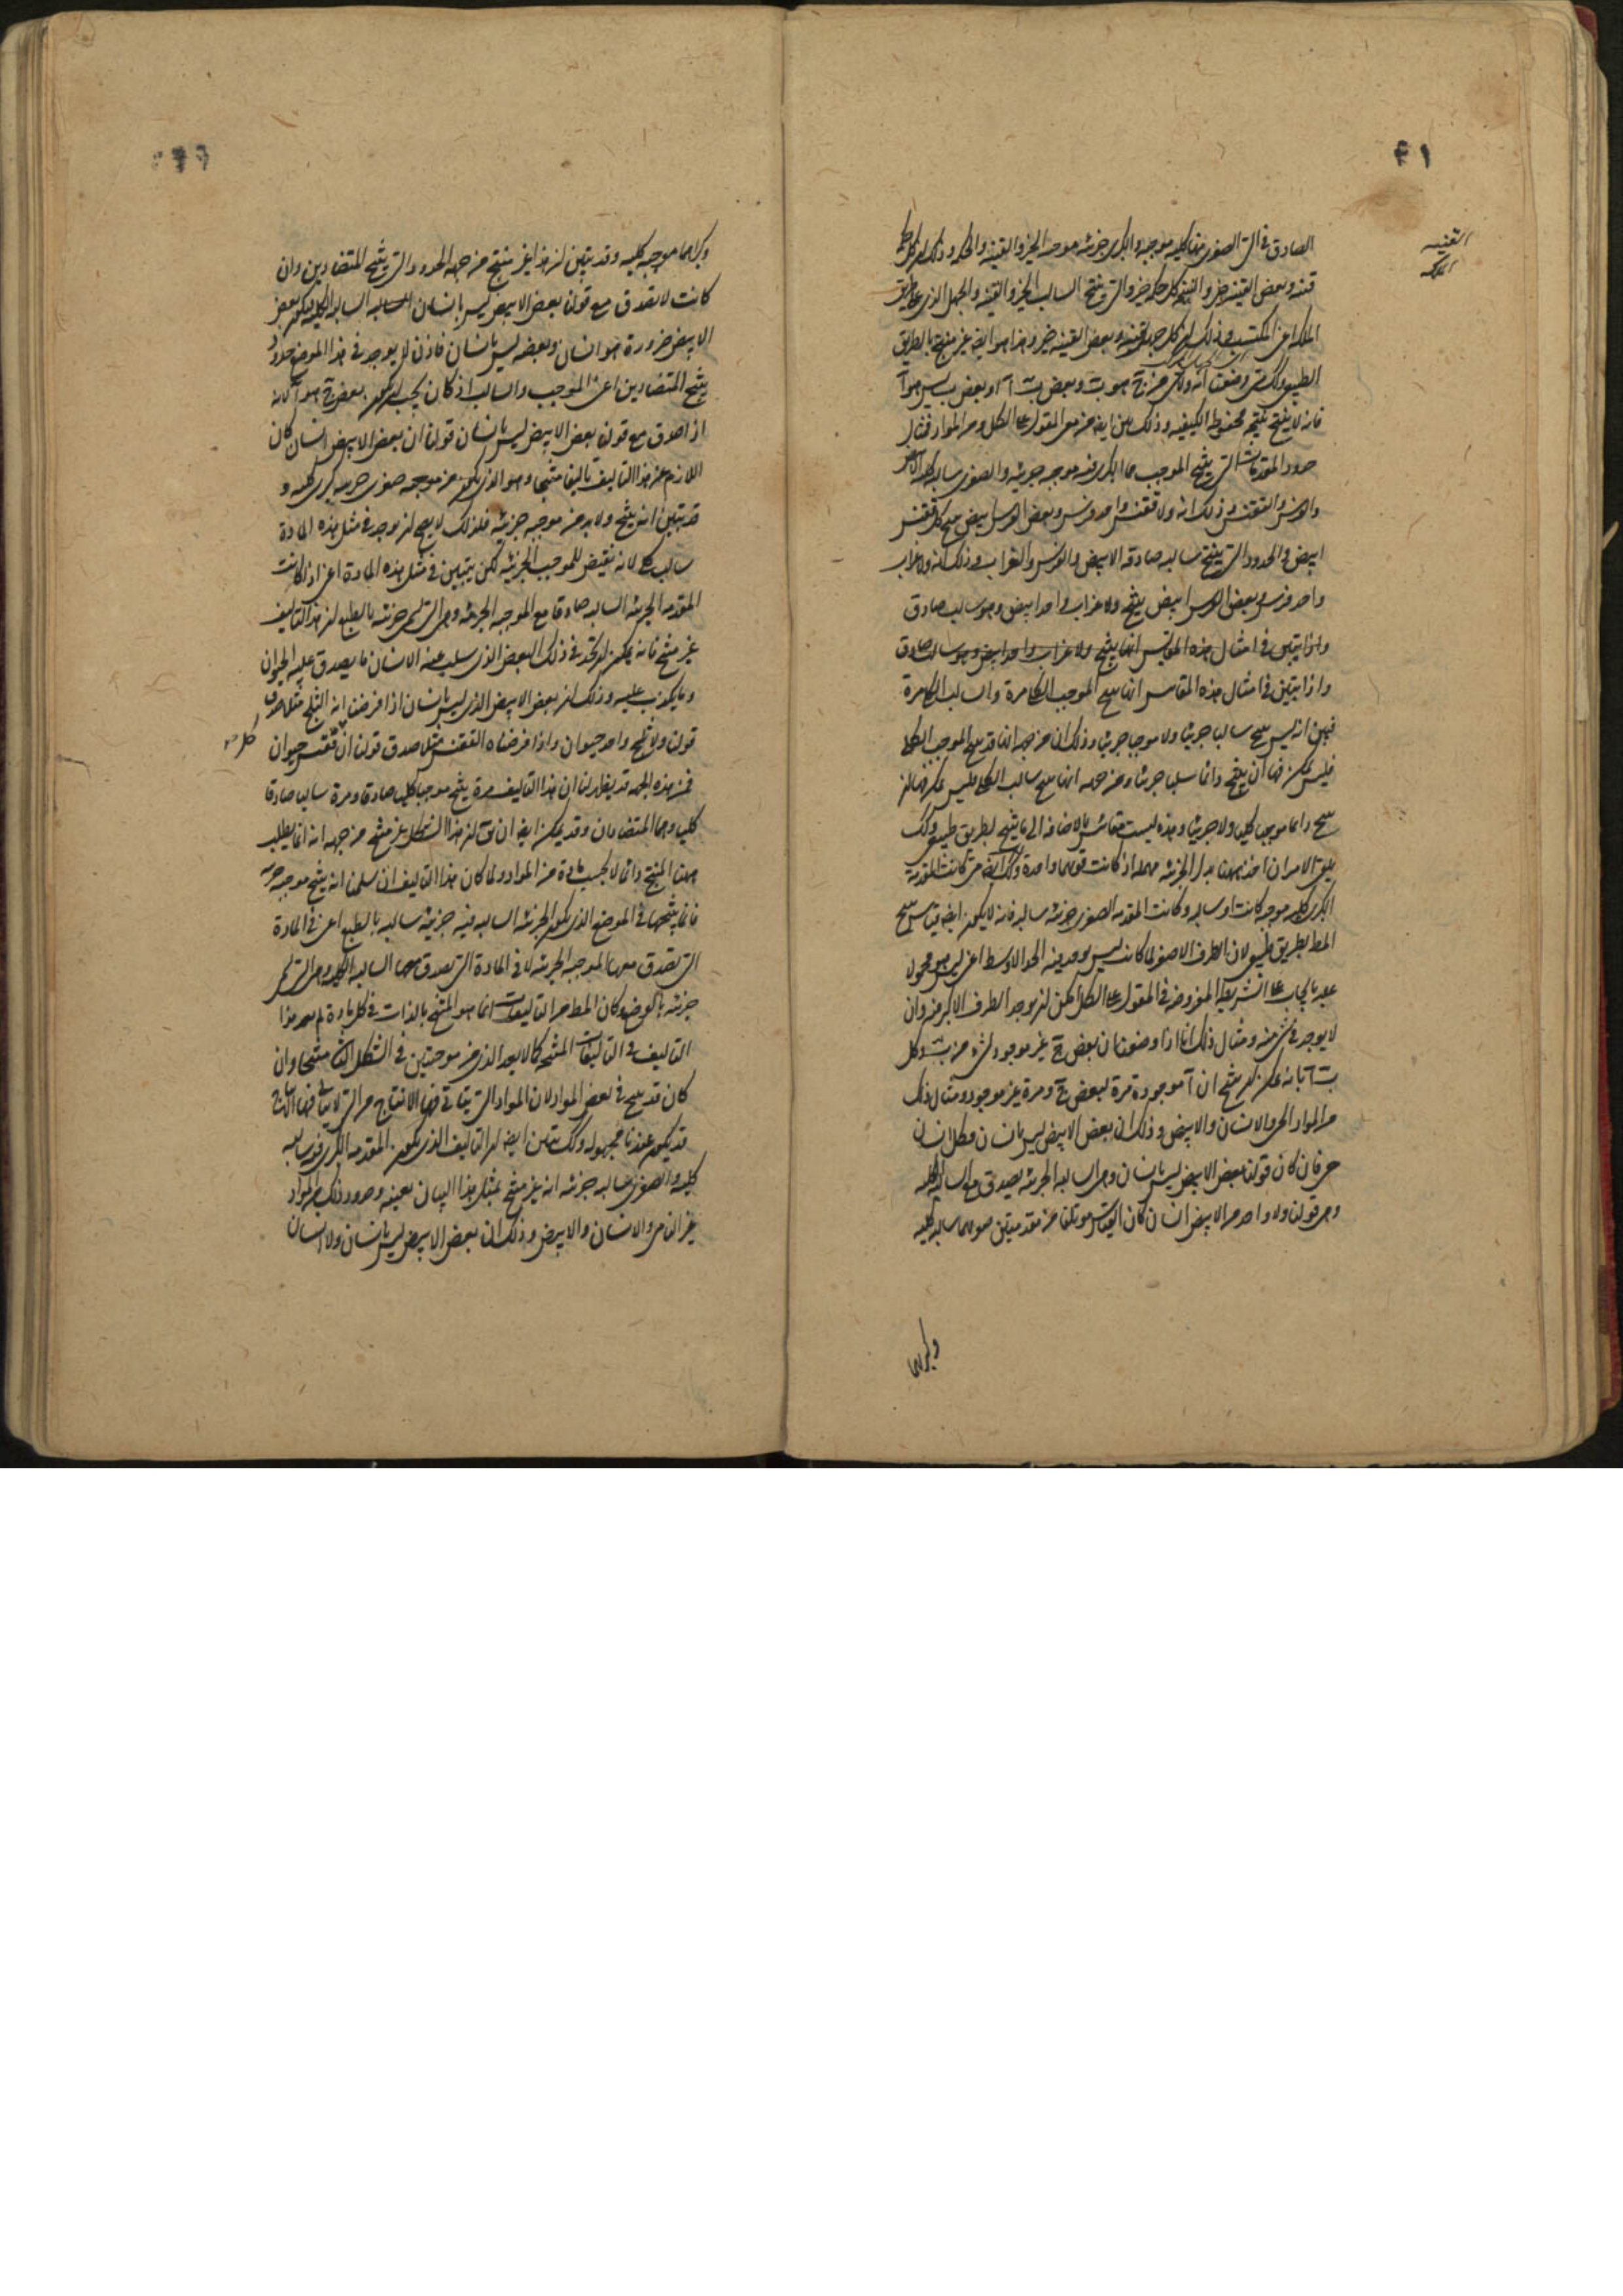 ٤١
القنيه
الملكه
الصادق في التي الصغرى منها كليه موجبه والكبرى جزئيه موجبه الخير والقنيه والحكمه وذلك ان كل حكمه
قنيه وبعض القنيه خير والنتيجه كل حكمه خير والتي ينتج السالب الخير والقنيه والجهل الذي على طريق
الملكه اعني المكتسب وذلك ان كل جهل قنيه وبعض القنيه خير وهذا هو ايضا غير منتج بالطريق
الطبيعي وكذلك متى وضعت انه ولا شي من ج هو ب وبعض ب آ او بعض ب ليس هو آ
فانه لا ينتج نتيجه محفوظه الكيفيه وذلك بين ايضا من معنى المقول على الكل ومن المواد فمثال
حدود المقدمات التي ينتج الموجب مما الكبرى فيه موجبه جزئيه والصغرى سالبه كليه الابيض
والفرس والققنس وذلك انه ولا ققنس واحد فرس وبعض الفرس ابيض ينتج كل ققنس
ابيض والحدود التي ينتج سالبه صادقه الابيض والفرس والغراب وذلك انه ولا غراب
واحد فرس وبعض الفرس ابيض ينتج ولا غراب واحد ابيض وهو سالب صادق
واذا يتبين في امثال هذه المقاييس انها ينتج ولا غراب واحد ابيض وهو سالب صادق
واذا يتبين في امثال هذه المقاييس انها ينتج الموجب الكلي مرة والسالب الكلي مرة
فبين انه ليس ينتج سالبا جزئيا ولا موجبا جزئيا وذلك انه من جهه انها قد ينتج الموجب الكلي
فليس يمكن فيها ان ينتج دائما سلبا جزئيا ومن جهه انها ينتج سالب الكلي فليس يمكن فيها ان
ينتج دائما موجبا كليا ولا جزئيا وهذه ليست مقاييس بالاضافه الى ما ينتج بطريق طبيعي وكذلك
يلزم الامر ان اخذ ههنا بدل الجزئيه مهمله اذ كانت قوتهما واحدة وكذلك ايضا متى كانت المقدمه
الكبرى كليه موجبه كانت او سالبه وكانت المقدمه الصغرى جزئيه سالبه فانه لا يكون ايضا قياس ينتج
المط بطريق طبيعي لان الطرف الاصغر لما كانت ليس يوجد فيه الحد الاوسط اعني ليس هو محمولا
عليه بايجاب على الشريطه المفروضه في المقول على الكل امكن ان يوجد الطرف الاكبر فيه وان
لا يوجد في شي منه ومثال ذلك انا اذا وضعنا ان بعض ج غير موجود لشي من ب وكل
ب آ فانه يمكن ان ينتج ان آ موجودة مرة لبعض ج ومرة غير موجود ومثال ذلك
من المواد الحي والانسان والابيض وذلك ان بعض الابيض ليس بانسان وكل انسان
حي فان كان قولنا بعض الابيض ليس بانسان وهي السالبه الجزئيه يصدق مع السالبه الكليه
وهي قولنا ولا واحد من الابيض انسان كان القياس مؤتلفا من مقدمتين صغراهما سالبه كليه
وكبراهما
وكبراهما موجبه كليه وقد يتبين ان هذا غير منتج من جهه الحدود التي ينتج المتضادين وان
كانت لا تصدق مع قولنا بعض الابيض ليس بانسان السالبه الكليه فيكون بعض
الابيض ضرورة هو انسان وبعضه ليس بانسان فاذن لن يوجد في هذا الموضع حدود
ينتج المتضادين اعني الموجب والسالب اذ كان يجب ان يكون بعض ج هو آ لانه
اذا صدق مع قولنا بعض الابيض ليس بانسان قولنا ان بعض الابيض انسان كان
اللازم عن هذا التاليف تاليفا منتجا وهو الذي يكون من موجبه صغرى جزئيه وكبرى كليه و
قد تبين انه ينتج ولا بد من موجبه جزئيه فلذلك لا يصح ان يوجد في مثل هذه المادة
سالب كلي لانه نقيض للموجب الجزئيه لكن يتبين في مثل هذه المادة اعني اذا كانت
المقدمه الجزئيه السالبه صادقا مع الموجبه الجزئيه وهي التي هي جزئيه بالطبع ان هذا التاليف
غير منتج فانه يمكن ان نجد في ذلك البعض الذي سلب عنه الانسان ما يصدق عليه الحيوان
وما يكذب عليه وذلك ان بعض الابيض الذي ليس بانسان اذا فرضنا انه الثلج مثلا صدق
قولنا ولا ثلج واحد حيوان واذا فرضناه الققنس مثلا صدق قولنا ان ققنس حيوان
كل
فمن هذه الجهه قد يظهر لنا ان هذا التاليف مرة ينتج موجبا كليا صادقا ومرة سالبا صادقا
كليا وهما المتضادان وقد يمكن ايضا ان نق ان هذا الشكل غير منتج من جهه انه انما يطلب
ههنا المنتج دائما لا بحسب مادة من المواد ولما كان هذا التاليف ان سلمنا انه ينتج موجبه جزئيه
فانما ينتجها في الموضع الذي يكون الجزئيه السالبه فيه جزئيه سالبه بالطبع اعني في المادة
التي تصدق معها الموجبه الجزئيه لا في المادة التي تصدق معها السالبه الكليه وهي التي هي
جزئيه بالعرض وكان المط من التاليفات انما هو المنتج بالذات في كل مادة لم يعد هذا
التاليف في التاليفات المنتجه كما لا يعد الذي من موجبتين في الشكل الثاني منتجا وان
كان قد ينتج في بعض المواد لان المواد التي يتاتى فيها الانتاج من التي لا يتاتى فيها الانتاج
قد يكون عندنا مجهوله وكذلك يتبين ايضا ان التاليف الذي يكون المقدمه الكبرى فيه سالبه
كليه والصغرى سالبه جزئيه انه غير منتج بمثل هذا البيان بعينه وحدود ذلك من المواد
غير الناس والانسان والابيض وذلك ان بعض الابيض ليس بانسان ولا انسان